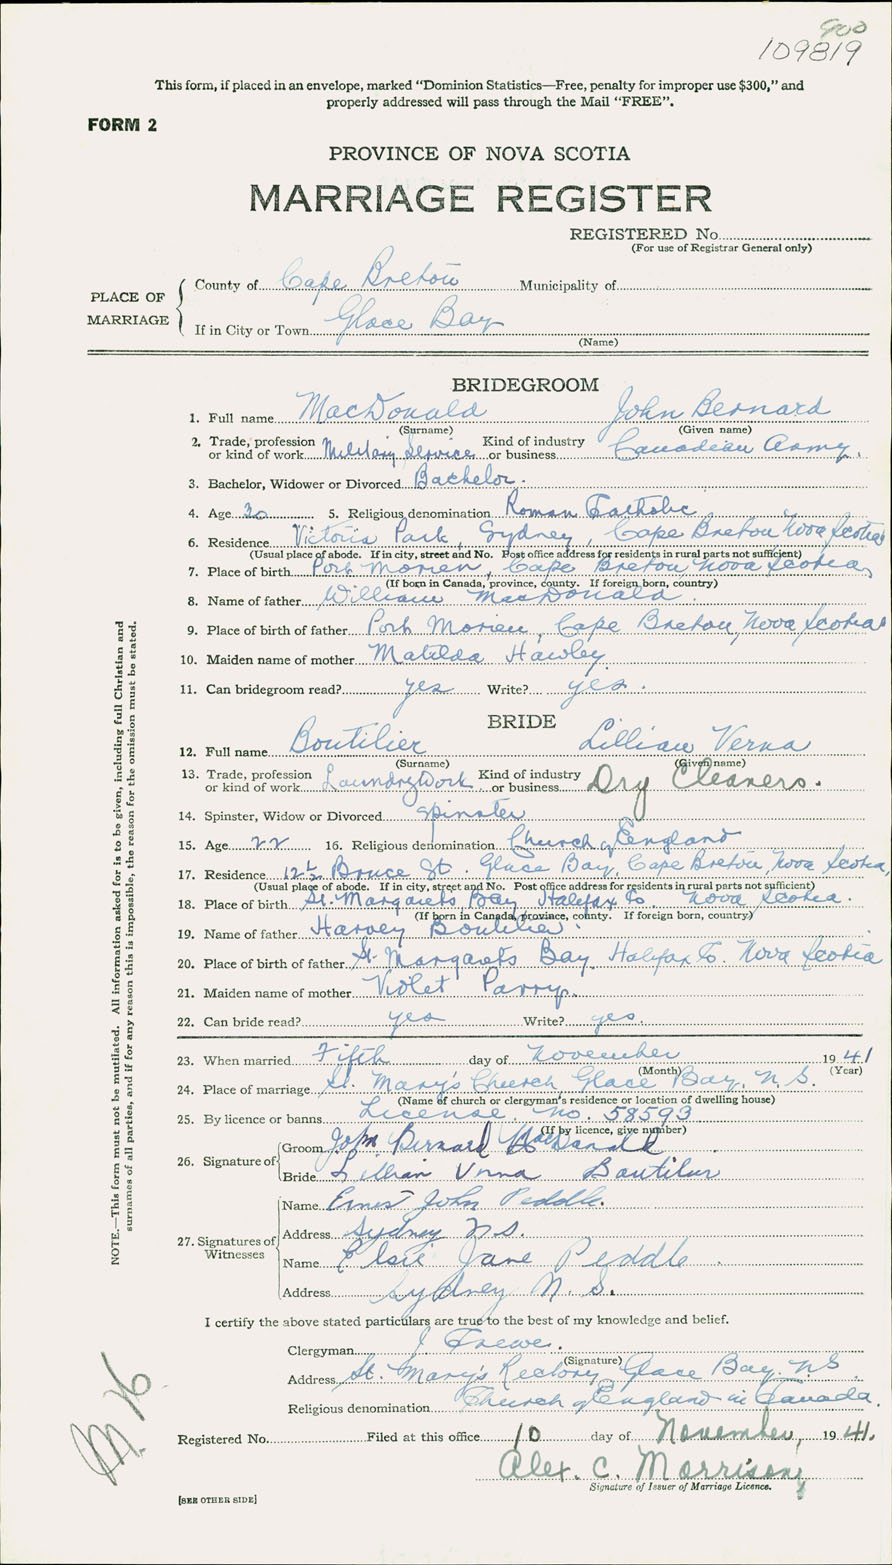 900
109819
This form, if placed in an envelope, marked "Dominion Statistics—Free, penalty for improper use $300," and
properly addressed will pass through the Mail "FREE".
FORM 2
PROVINCE OF NOVA SCOTIA
MARRIAGE REGISTER
REGISTERED No.
(For use of Registrar General only)
PLACE OF MARRIAGE
County of Cape Breton Municipality of
If in City or Town Glace Bay
(Name)
BRIDEGROOM
1. Full name MacDonald John Bernard
(Surname) (Given name)
2. Trade, profession or kind of work Military Service Kind of industry or business Canadian Army.
3. Bachelor, Widower or Divorced Bachelor.
4. Age 20 5. Religious denomination Roman Catholic
6. Residence Victoria Park, Sydney, Cape Breton Nova Scotia
(Usual place of abode. If in city, street and No. Post office address for residents in rural parts not sufficient)
7. Place of birth Port Morien, Cape Breton Nova Scotia,
(If born in Canada, province, county. If foreign born, country)
8. Name of father William MacDonald.
9. Place of birth of father Port Morien, Cape Breton, Nova Scotia
10. Maiden name of mother Matilda Hawley
11. Can bridegroom read? yes Write? yes.
BRIDE
12. Full name Boutilier Lillian Verna
(Surname) (Given name)
13. Trade, profession or kind of work Laundry Work Kind of industry or business Dry Cleaners.
14. Spinster, Widow or Divorced Spinster
15. Age 22 16. Religious denomination Church of England
17. Residence 12½ Bruce St. Glace Bay, Cape Breton, Nova Scotia,
(Usual place of abode. If in city, street and No. Post office address for residents in rural parts not sufficient)
18. Place of birth St. Margarets Bay Halifax Co. Nova Scotia.
(If born in Canada, province, county. If foreign born, country)
19. Name of father Harvey Boutilier.
20. Place of birth of father St. Margarets Bay Halifax Co. Nova Scotia
21. Maiden name of mother Violet Parry.
22. Can bride read? yes Write? yes.
23. When married Fifth day of November 1941
(Month) (Year)
24. Place of marriage St. Mary's Church, Glace Bay, N.S.
(Name of church or clergyman's residence or location of dwelling house)
25. By licence or banns License. No. 58593
(If by licence, give number)
26. Signature of
Groom John Bernard MacDonald
Bride Lillian Verna Boutilier
27. Signatures of Witnesses
Name Ernest John Peddle.
Address Sydney N.S.
Name Elsie Jane Peddle
Address Sydney N. S.
I certify the above stated particulars are true to the best of my knowledge and belief.
Clergyman J. Frewe.
(Signature)
Address St. Mary's Rectory, Glace Bay. N.S
Religious denomination Church of England in Canada.
Registered No. Filed at this office 10 day of November, 1941.
Alex. C. Morrison
Signature of Issuer of Marriage Licence.
[SEE OTHER SIDE]
NOTE.—This form must not be mutilated. All information asked for is to be given, including full Christian and
surnames of all parties, and if for any reason this is impossible, the reason for the omission must be stated.